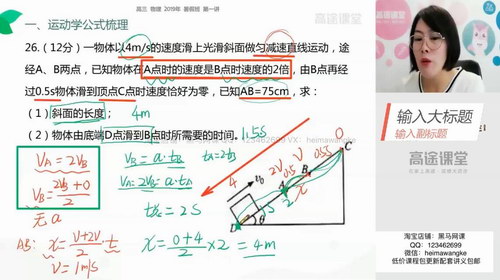 高三 物理 2019年 暑假班 第一讲
高途课堂
一、运动学公式梳理
26.(12分) 一物体以4m/s的速度滑上光滑斜面做匀减速直线运动，途
经A、B两点，已知物体在A点时的速度是B点时速度的2倍，由B点再经
过0.5s物体滑到顶点C点时速度恰好为零，已知AB=75cm，求：
(1) 斜面的长度； 4m
(2) 物体由底端D点滑到B点时所需要的时间。1.5s
VX：heimawangke
VA = 2VB
VB = 2VB+0 / 2
无a
AB: x = V+2V / 2 · t
V = 1m/s
VB = a·tB
VA = 2VB = a·tA
tA = 2tB
t总 = 2S
x = 0+4 / 2 × 2 = 4m
4
v0
D
θ
A
B
C
2V
V
0.5S
0
x
输入大标题
输入副标题
高途课堂
淘宝店铺：黑马网课
QQ：123462699
低价课程包更新配套讲义包邮